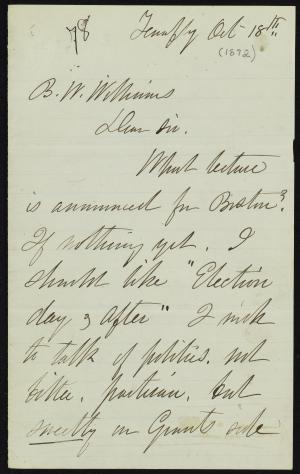 78
Tenafly Oct 18th
(1872)
B. W. Williams
Dear Sir.
What lecture
is announced for Boston?
If nothing yet. I
should like "Election
day & after" I wish
to talk of politics. not
bitter, partisan, but
sweetly on Grants side